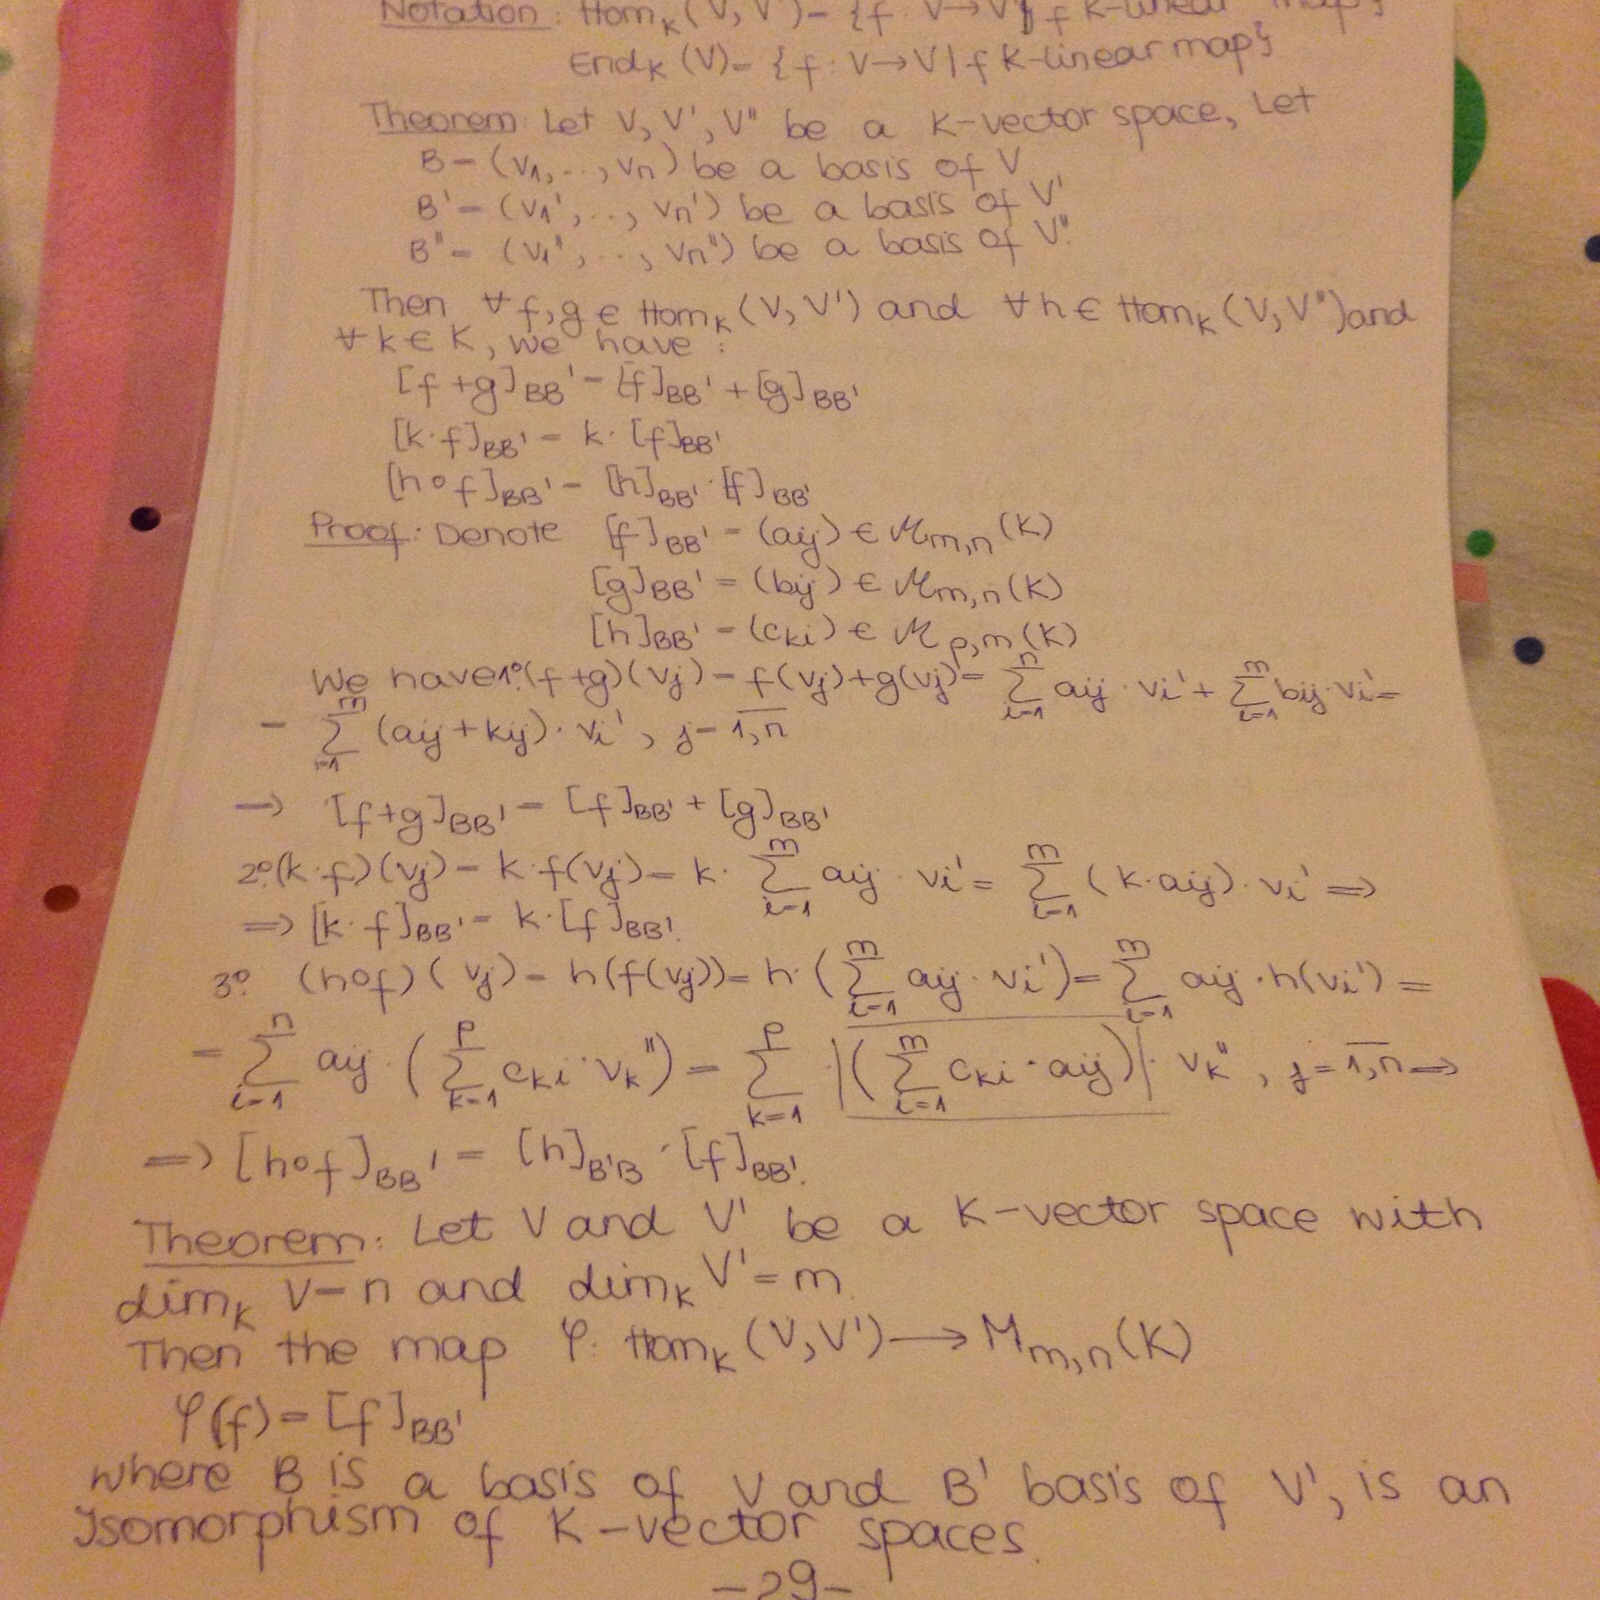 Notation: Hom_K(V, V') = {f: V→V' | f K-linear map}
End_K(V) = {f: V→V | f K-linear map}
Theorem: Let V, V', V'' be a K-vector space, Let
B = (v1, .., vn) be a basis of V
B' = (v1', .., vn') be a basis of V'
B'' = (v1'', .., vn'') be a basis of V''.
Then ∀ f, g ∈ Hom_K(V, V') and ∀ h ∈ Hom_K(V, V'') and
∀ k ∈ K, we have:
[f+g]_BB' = [f]_BB' + [g]_BB'
[k·f]_BB' = k·[f]_BB'
[h∘f]_BB' = [h]_BB' · [f]_BB'
Proof: Denote [f]_BB' = (aij) ∈ M_m,n(K)
[g]_BB' = (bij) ∈ M_m,n(K)
[h]_BB' = (cki) ∈ M_p,m(K)
We have 1º.(f+g)(vj) = f(vj)+g(vj) = ∑_{i=1}^{n} aij · vi' + ∑_{i=1}^{m} bij·vi' =
= ∑_{i=1}^{m} (aij + kij) · vi', j = \overline{1,n}
→ [f+g]_BB' = [f]_BB' + [g]_BB'
2º.(k·f)(vj) = k·f(vj) = k· ∑_{i=1}^{m} aij · vi' = ∑_{i=1}^{m} (k·aij) · vi' ⇒
⇒ [k·f]_BB' = k·[f]_BB'.
3º. (h∘f)(vj) = h(f(vj)) = h·(∑_{i=1}^{m} aij · vi') = ∑_{i=1}^{m} aij · h(vi') =
= ∑_{i=1}^{n} aij · (∑_{k=1}^{p} cki · vk'') = ∑_{k=1}^{p} |(∑_{i=1}^{m} cki · aij)| · vk'', j = \overline{1,n} ⇒
⇒ [h∘f]_BB' = [h]_B'B · [f]_BB'.
Theorem: Let V and V' be a K-vector space with
dim_K V = n and dim_K V' = m.
Then the map φ: Hom_K(V, V') → M_m,n(K)
φ(f) = [f]_BB'
where B is a basis of V and B' basis of V', is an
Isomorphism of K-vector spaces.
-29-